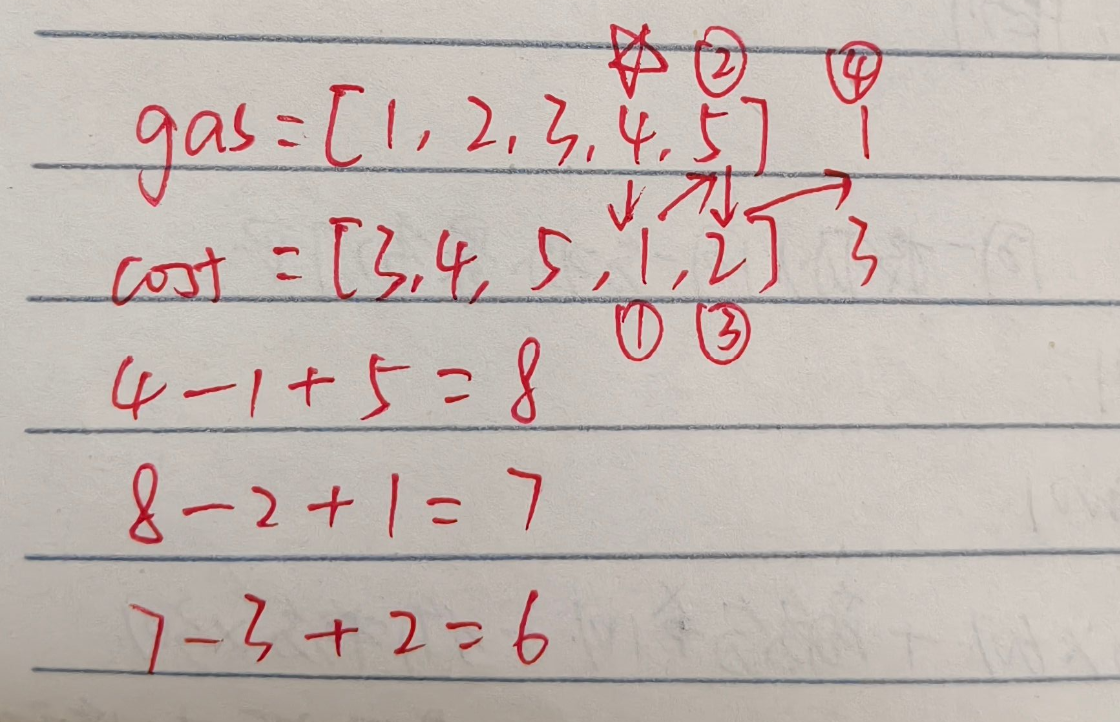 ② ④
gas=[1, 2, 3, 4, 5] 1
cost=[3, 4, 5, 1, 2] 3
① ③
4-1+5=8
8-2+1=7
7-3+2=6